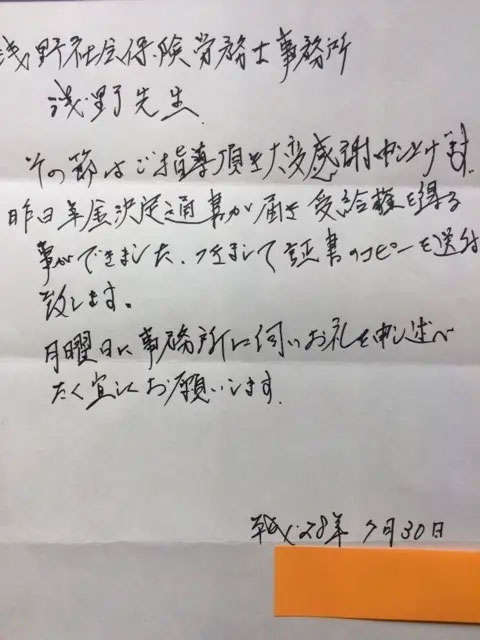 浅野社会保険労務士事務所
浅野先生
その節はご指導頂き大変感謝申し上げます。
昨日年金決定通書が届き受給権を得る
事ができました、つきまして証書のコピーを送付
致します。
月曜日に事務所に伺いお礼を申し述べ
たく宜しくお願いします。
平成28年7月30日